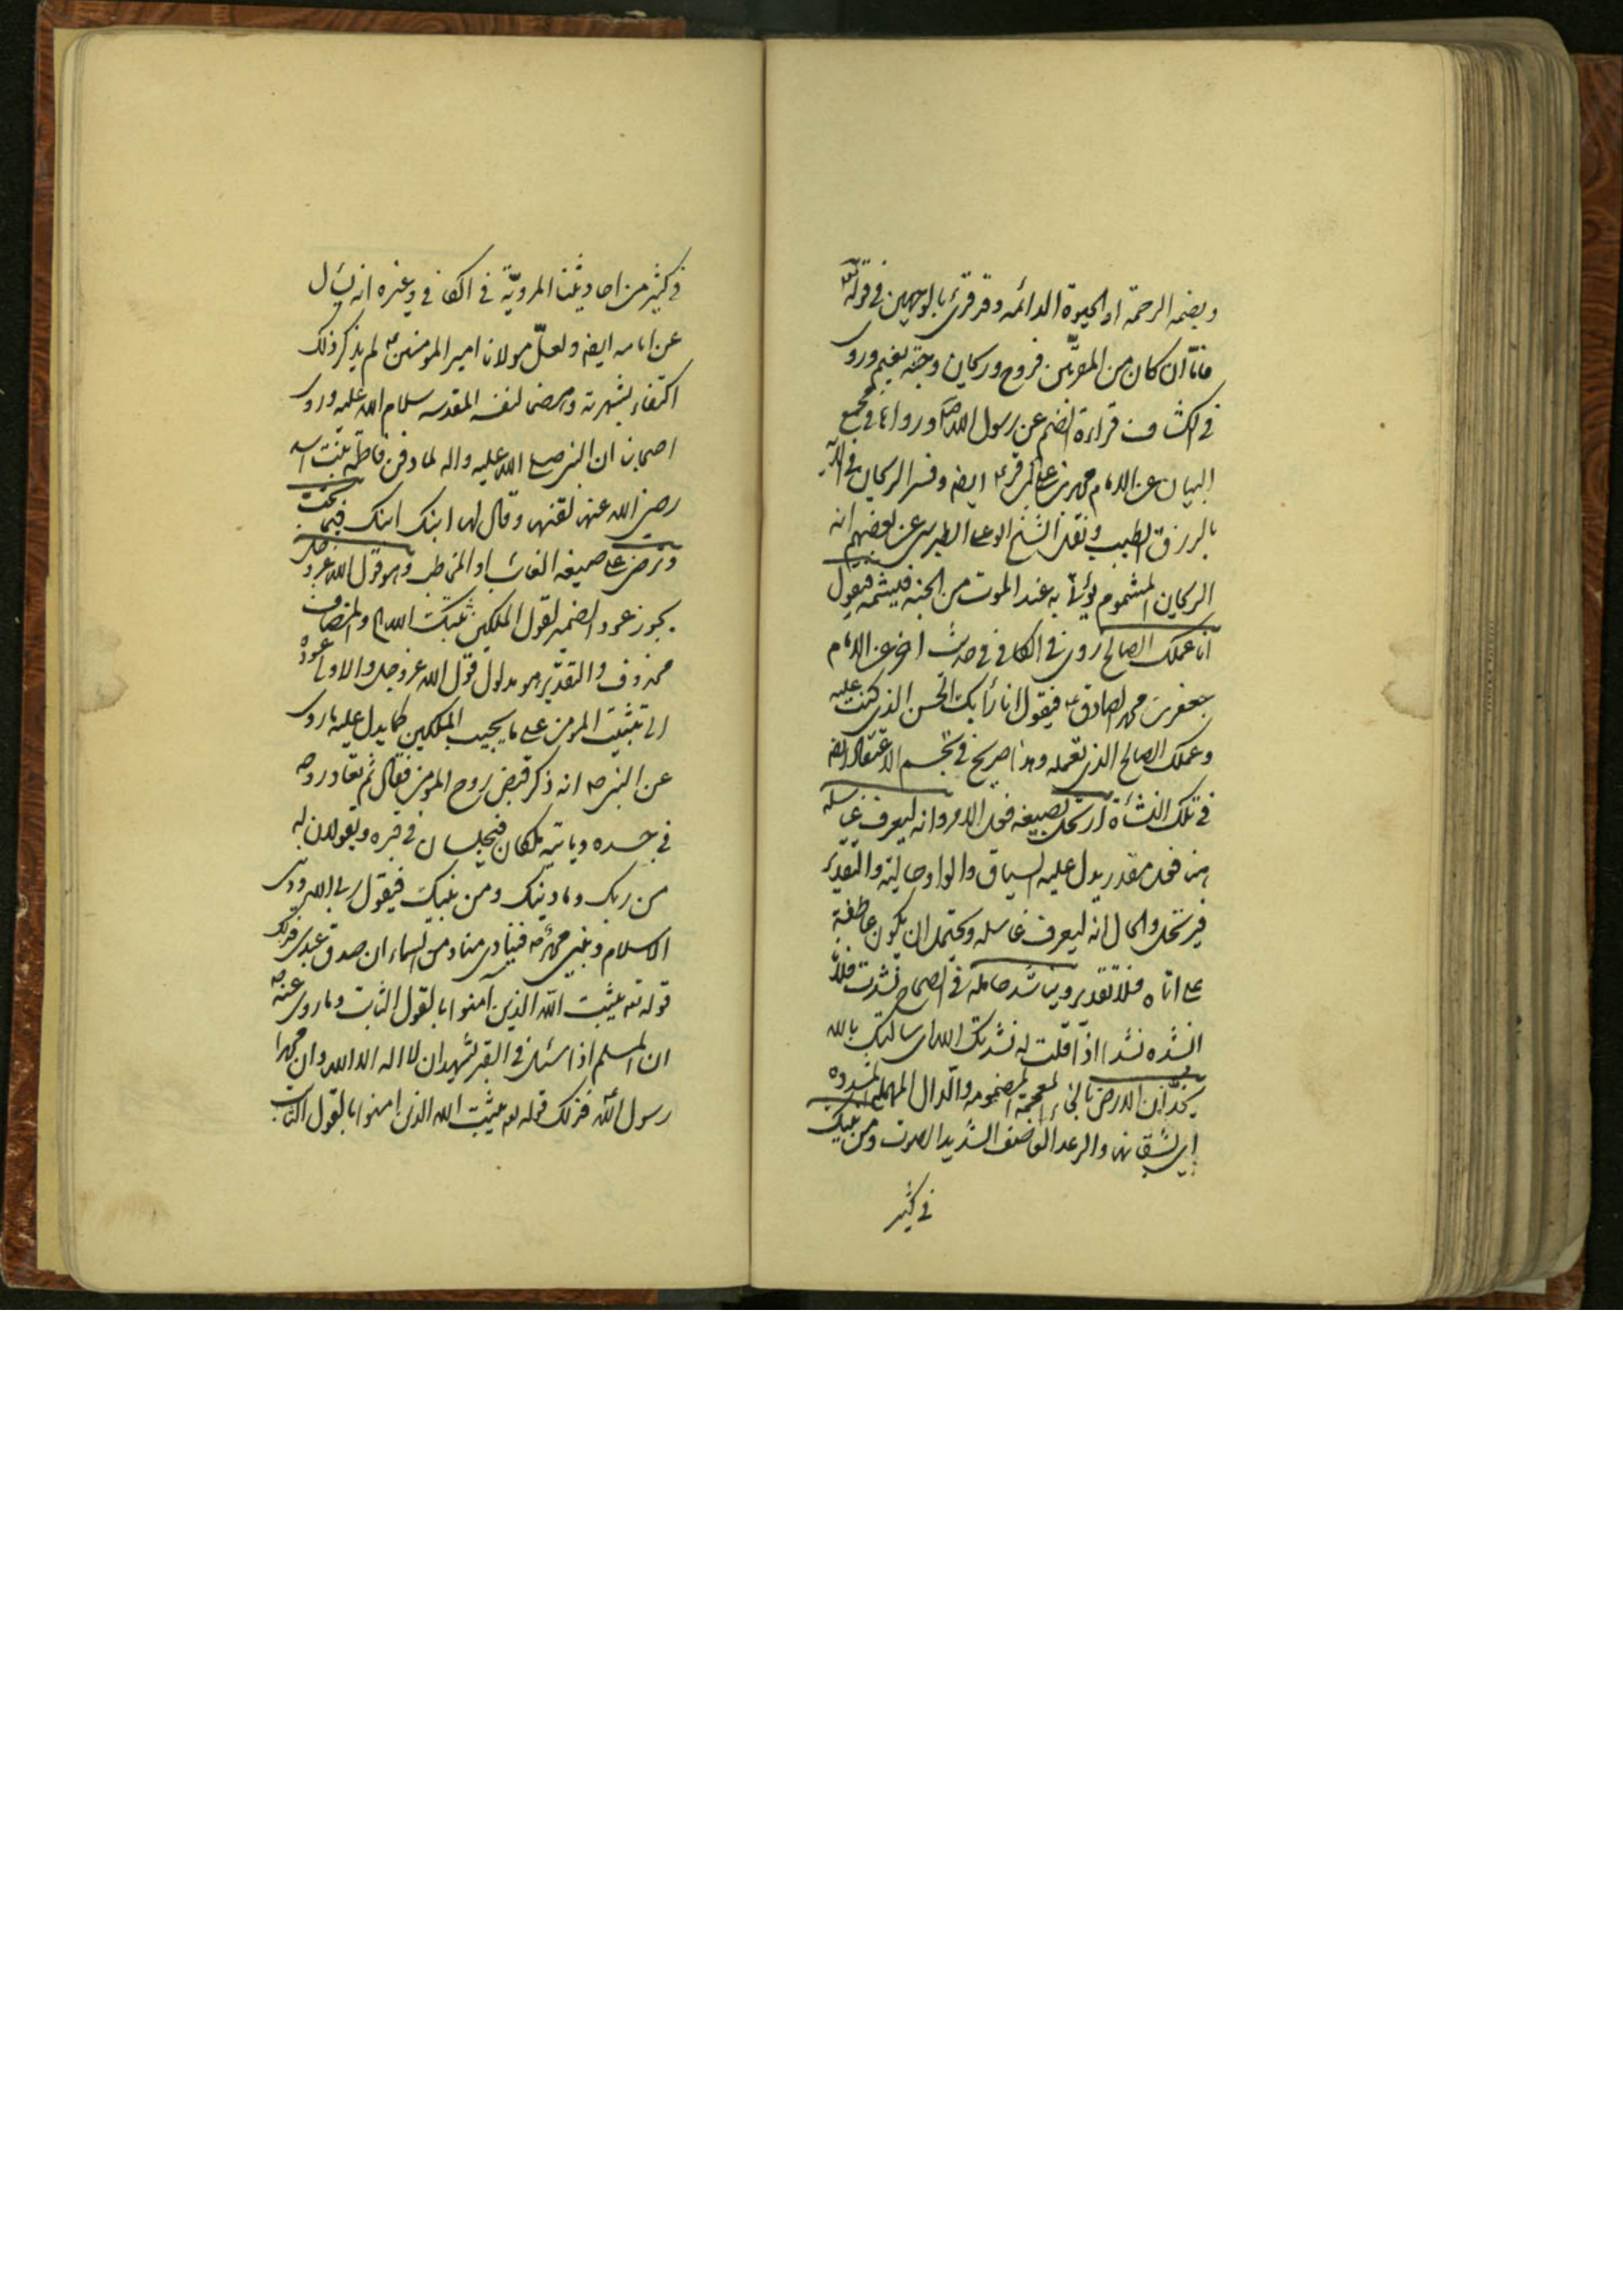 وبضمه الرحمة او الحيوة الدائمه وقد قرئ بالوجهين في قوله تعه
فاما ان كان من المقربين فروح وريحان وجنة نعيم وروى
في الكشاف قراءة الضم عن رسول الله ص ورواها في مجمع
البيان عن الامام محمد بن علي الباقر ع ايضا وفسر الريحان في الآية
بالرزق الطيب ونقل الشيخ ابو علي الطبرسي عن بعضهم انه
الريحان المشموم يؤتى به عند الموت من الجنه فيشمه فيقول
انا عملك الصالح روى في الكافي في حديث اخر عن الامام
جعفر بن محمد الصادق ع فيقول انا رأيك الحسن الذي كنت عليه
وعملك الصالح الذي تعمله وهذا صريح في تجسم الاعتقاد ايضا
في تلك النشأة ارتحل بصيغه فعل الامر وانه ليعرف غاسله
هنا فعل مقدر يدل عليه السياق والواو حالية والتقدير
فيرتحل والحال انه ليعرف غاسله ويحتمل ان يكون عاطفة
على اتاه فلا تقدير ويناشد حامله في الصحاح نشدت فلانا
انشده نشدا اذا قلت له نشدتك الله اي سالتك بالله
يخدان الارض بالخاء المعجمة المضمومه والدال المهمله المشدده
اي يشقانها والرعد القاصف الشديد الصوت ومن نبيك
في كثير
في كثير من احاديثنا المروية في الكافي وغيره انه يسال
عن امامه ايضا ولعل مولانا امير المومنين ع لم يذكر ذلك
اكتفاء بشهرته وهضما لنفسه المقدسه سلام الله عليه وروى
اصحابنا ان النبي صلى الله عليه واله لما دفن فاطمة بنت اسد
رضي الله عنها لقنها وقال لها ابنك ابنك فيما تحب
وترضى على صيغه الغائب او المخاطب وهو قول الله عز وجل
يجوز عود الضمير لقول الملكين ثبتك الله والمضاف
محذوف والتقدير هو مدلول قول الله عز وجل والاولى عوده
الى تثبيت المومن على ما يجيب الملكين كما يدل عليه ما روى
عن النبي ص انه ذكر قبض روح المومن فقال ثم تعاد روحه
في جسده وياتيه ملكان فيجلسان في قبره ويقولان له
من ربك وما دينك ومن نبيك فيقول ربي الله وديني
الاسلام ونبيي محمد ص فينادى مناد من السماء ان صدق عبدي فذلك
قوله تعه يثبت الله الذين آمنوا بالقول الثابت وما روى عنه ص
ان المسلم اذا سئل في القبر يشهد ان لا اله الا الله وان محمدا
رسول الله فذلك قوله تعه يثبت الله الذين امنوا بالقول الثابت